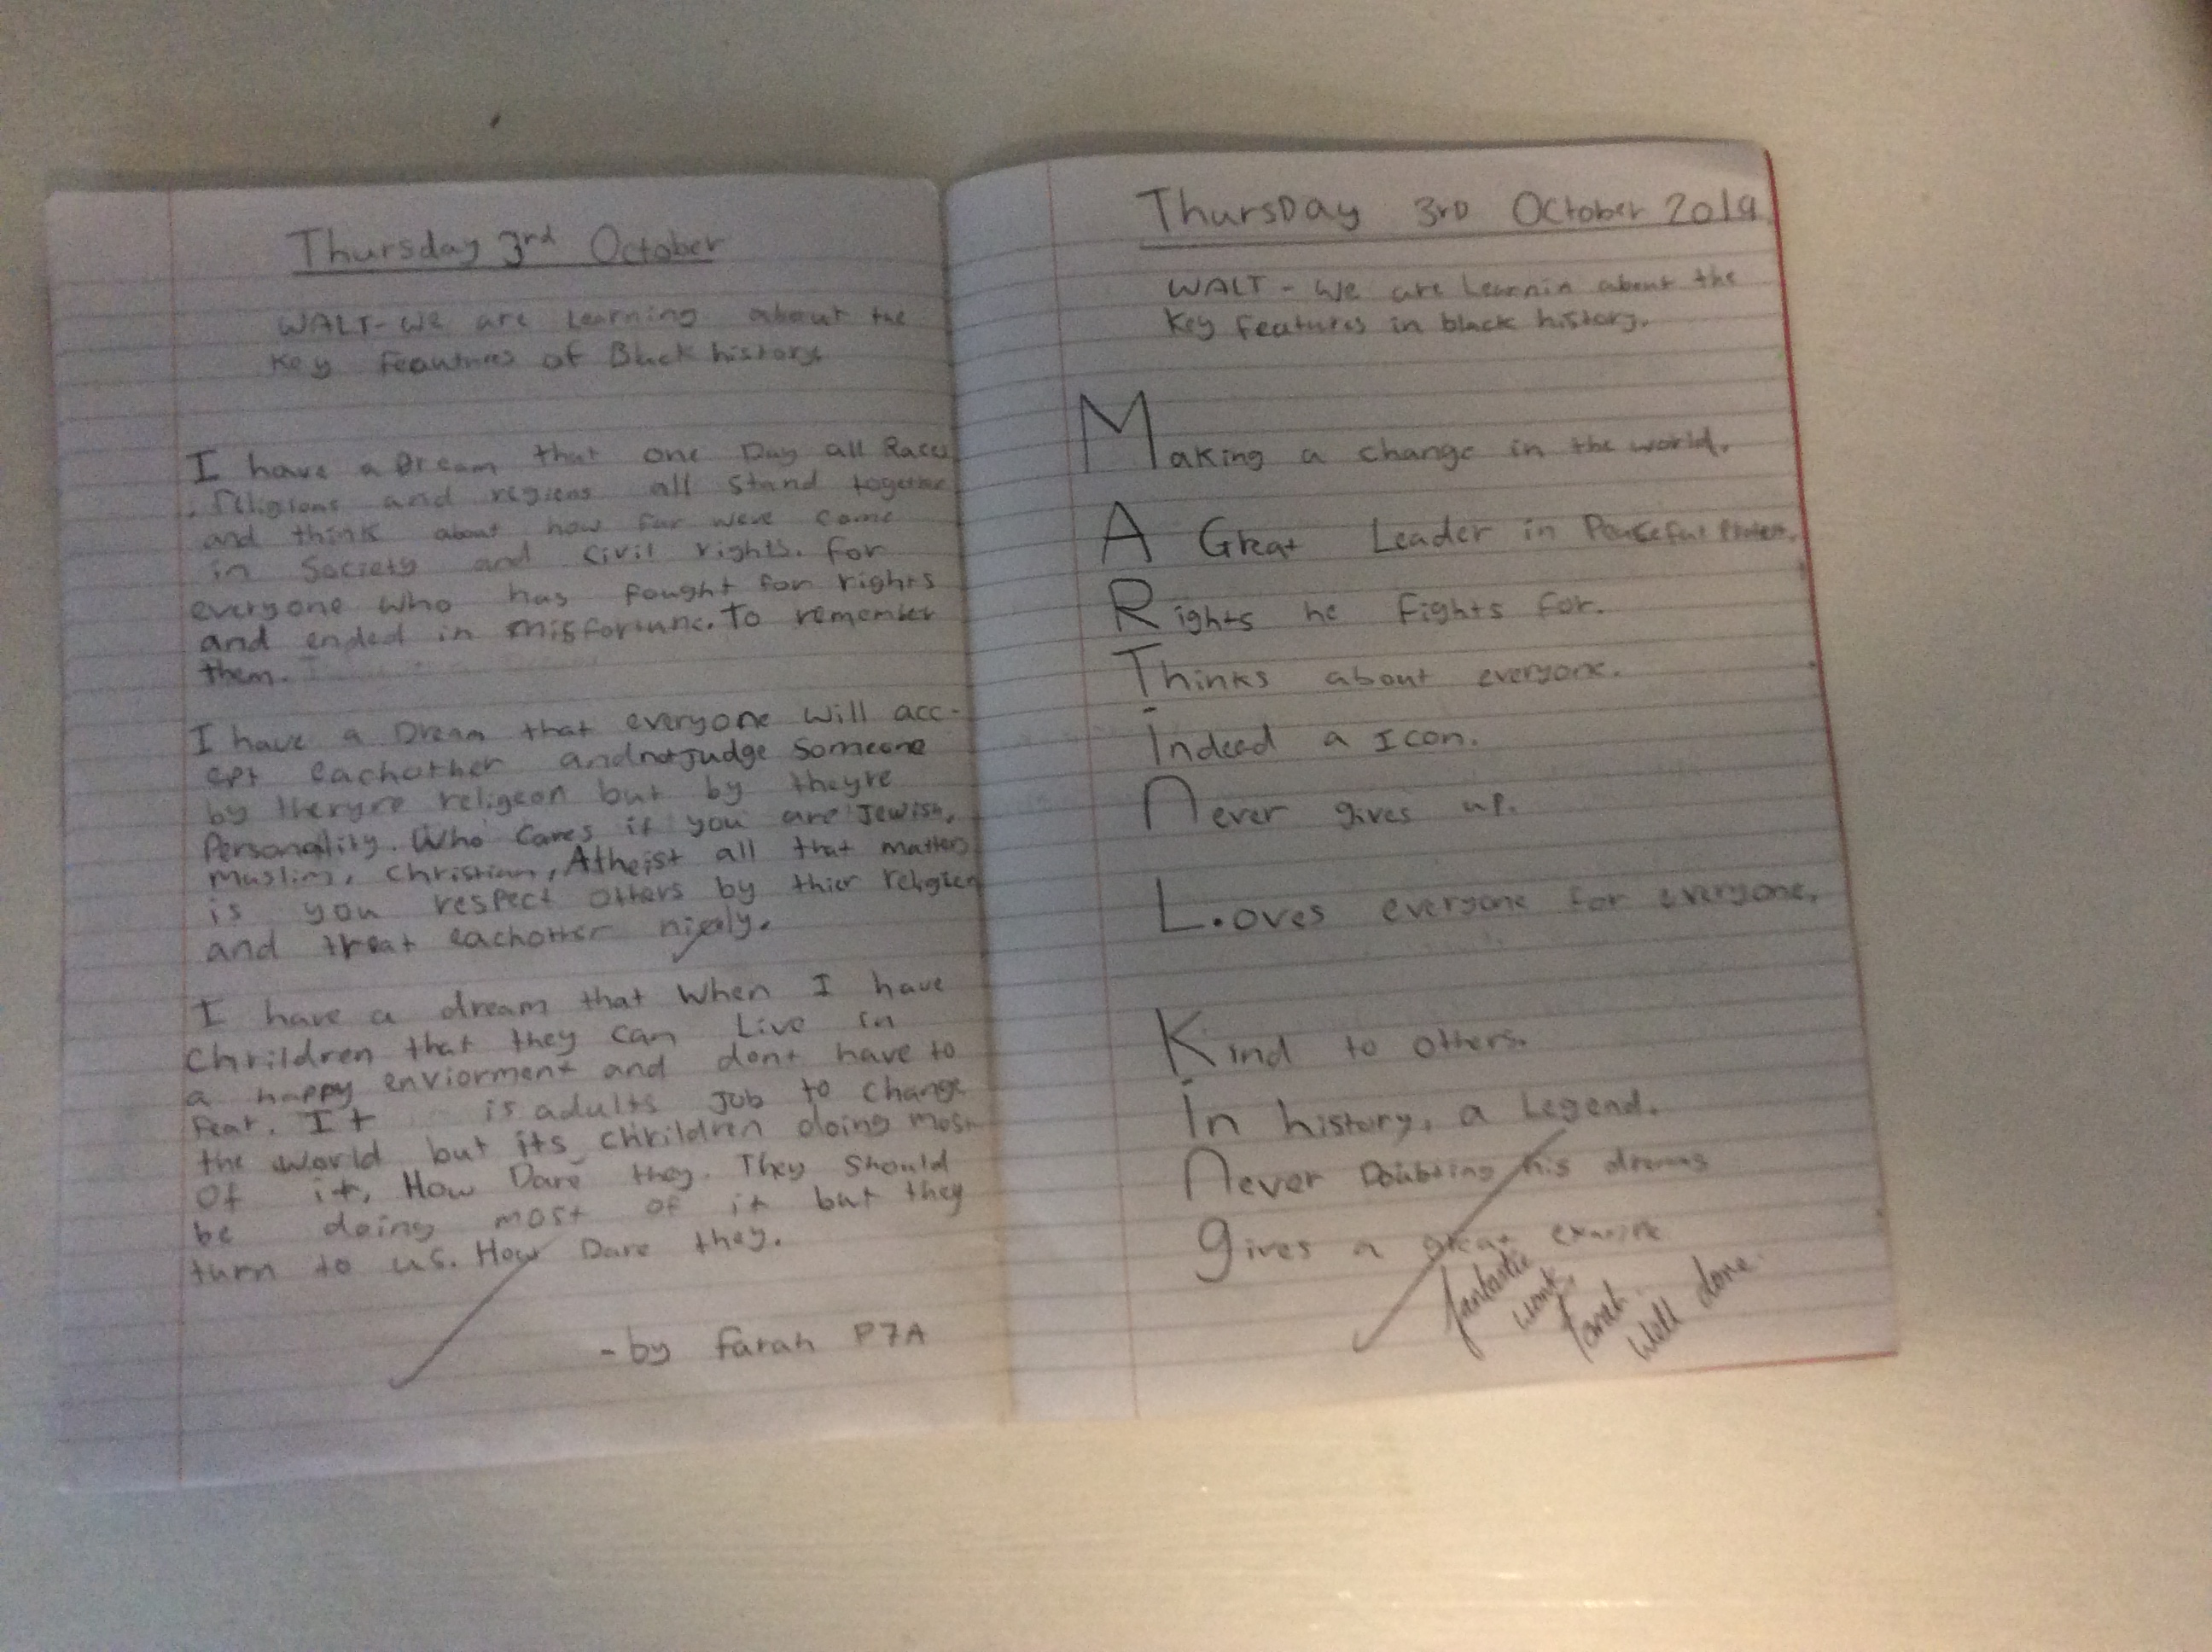 Thursday 3rd October
WALT- We are Learning about the
Key Feautures of Black history
I have a Dream that one Day all Races
, religions and regiens all stand together
and think about how far weve come
in Society and Civil rights. For
everyone who has fought for rights
and ended in misfortune. To remember
them.
I have a Dream that everyone will acc-
ept eachother and not judge Someone
by theryre religeon but by theyre
Personality. Who Cares if you are Jewish,
Muslim, Christian, Atheist all that matters
is you respect others by thier religien
and treat eachother nicely.
I have a dream that When I have
Chrildren that they can Live in
a happy enviorment and dont have to
fear. It is adults Job to Change
the world but its chrildren doing most
of it, How Dare they. They Should
be doing most of it but they
turn to us. How Dare they.
- by Farah P7A
ThursDay 3rD October 2019
WALT - We are Learnin about the
Key Features in black history.
Making a change in the world.
A Great Leader in Peaceful Protest.
Rights he Fights for.
Thinks about everyone.
Indeed a Icon.
Never gives up.
L.oves everyone for everyone.
Kind to others.
In history, a Legend.
Never Doubting his dreams
gives a great example
fantastic
work
Farah.
Well done.